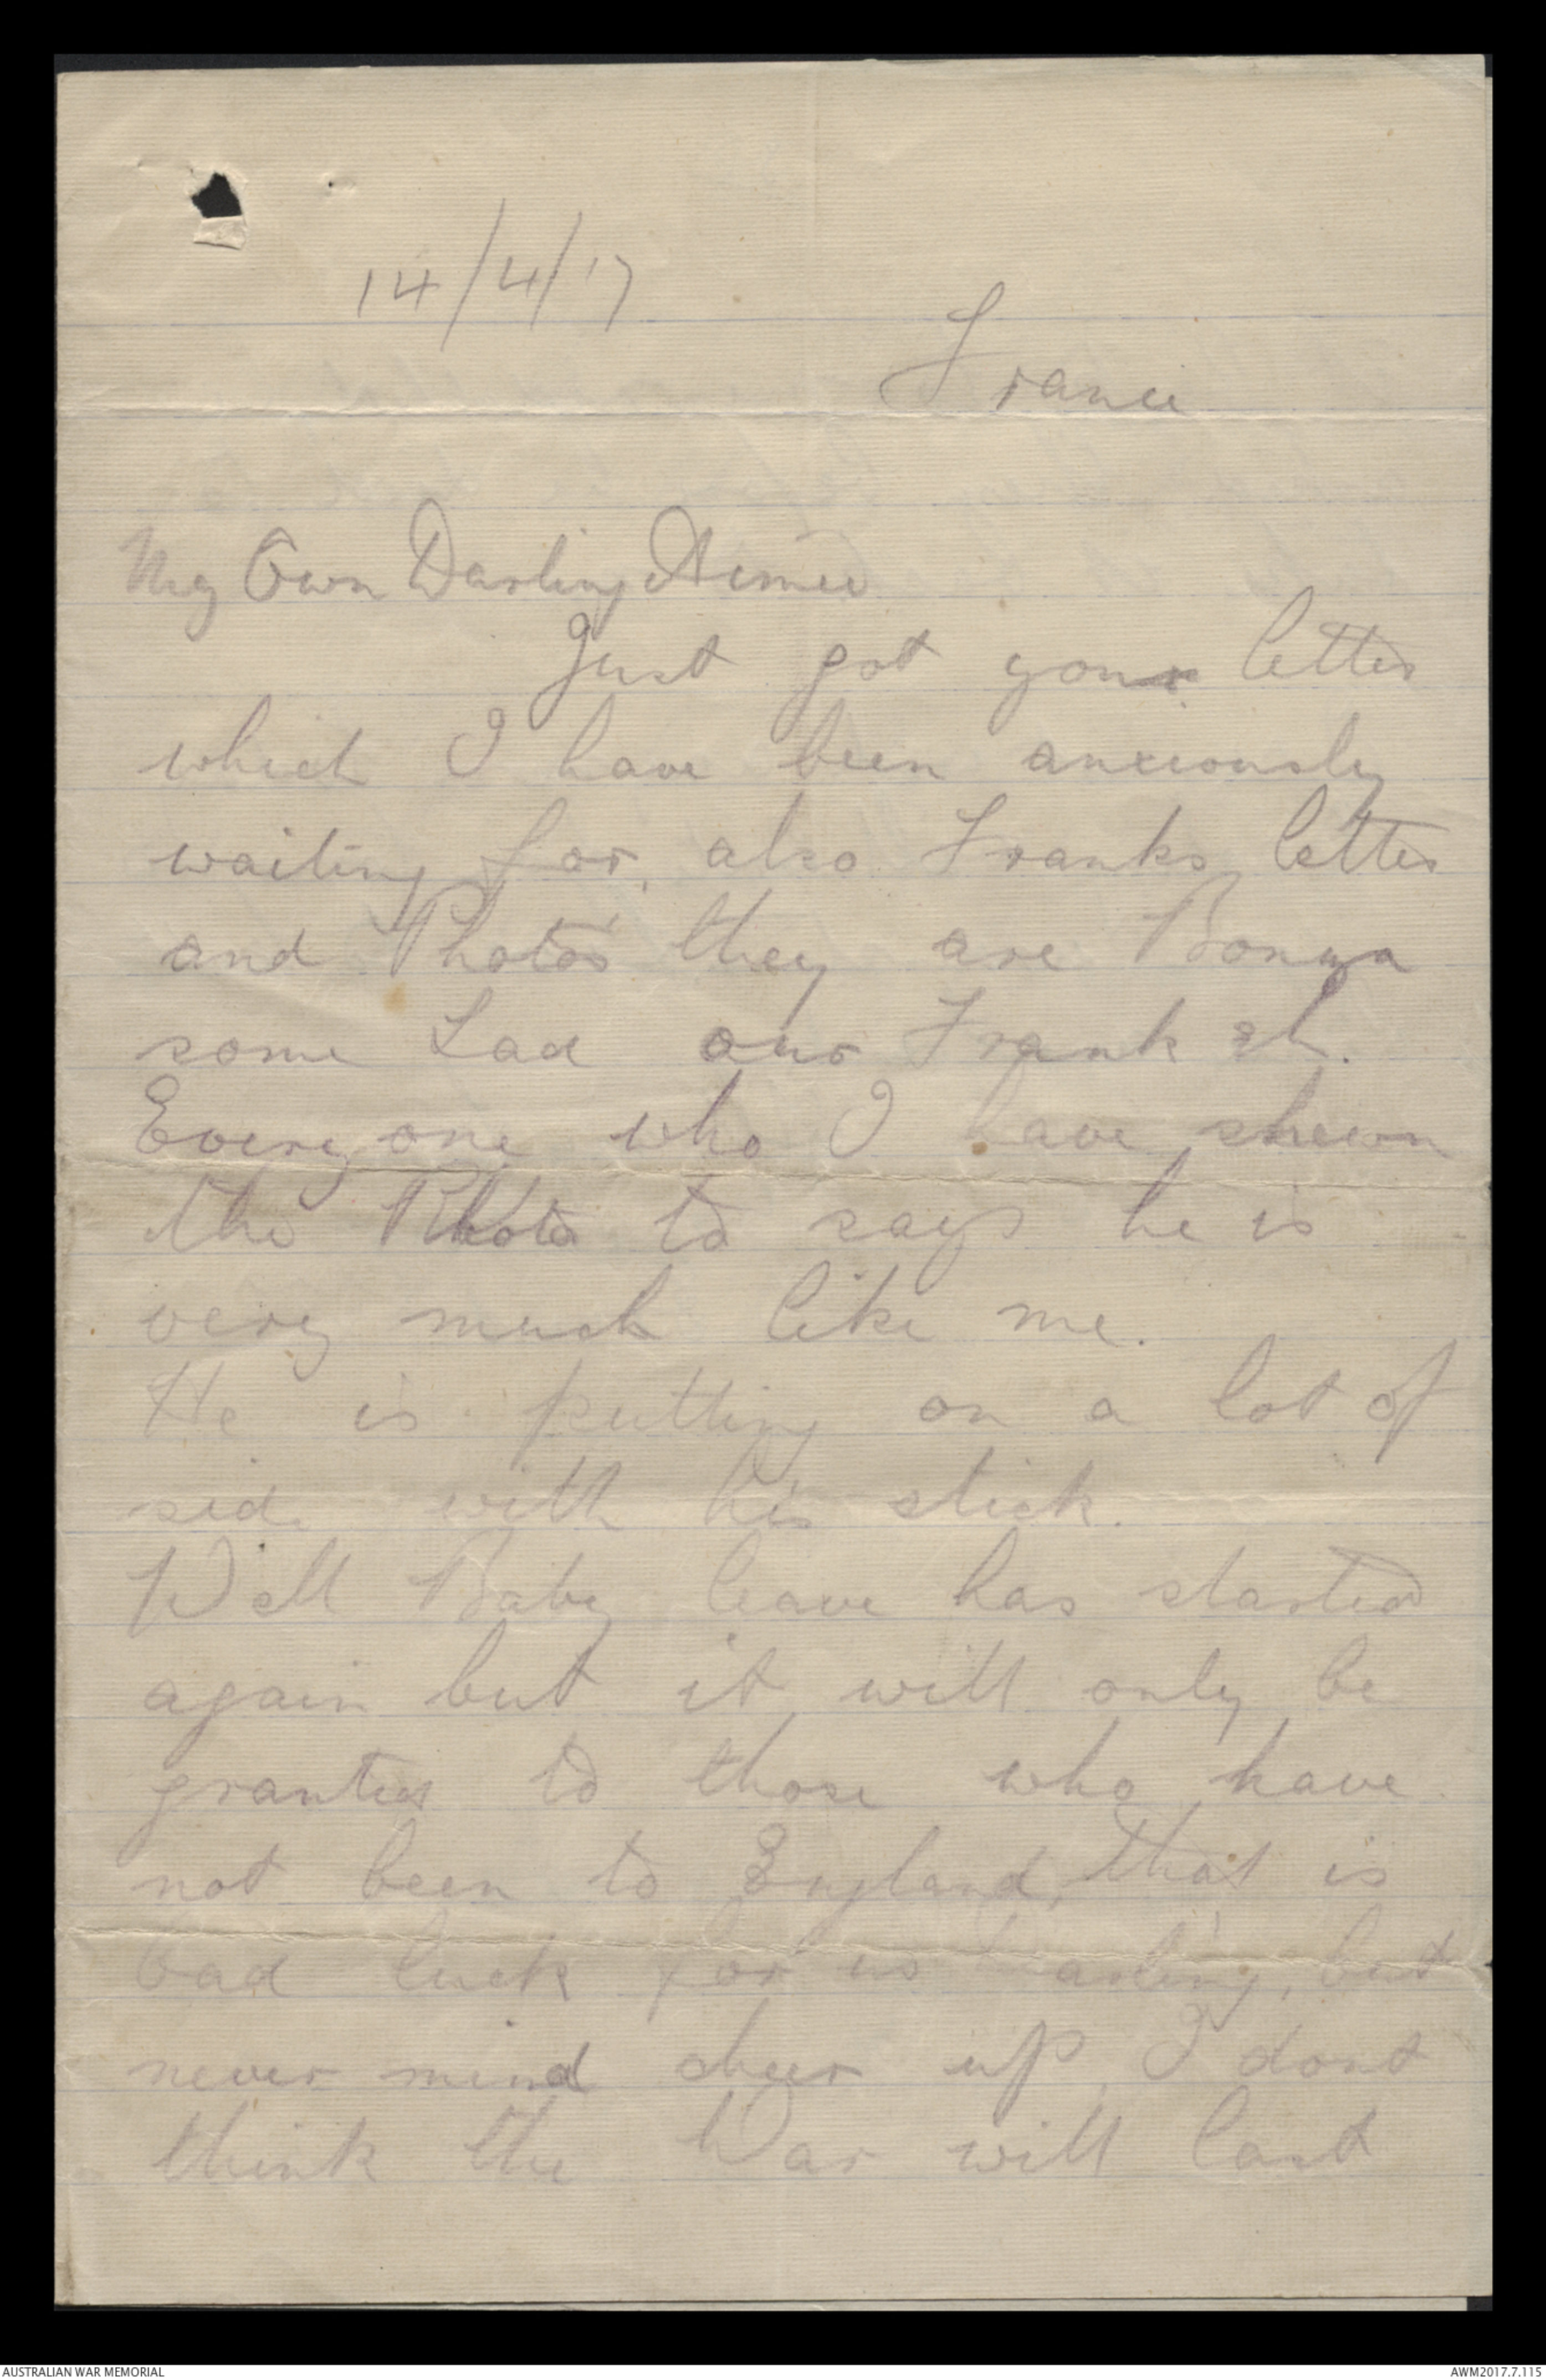 14/4/17
France
My Own Darling Aimee
Just got your letter
which I have been anxiously
waiting for, also Franks letter
and Photos they are Bonza
some Lad our Frank eh.
Every one who I have shewn
the Photo to says he is
very much like me.
He is putting on a lot of
side with his stick.
Well Baby leave has started
again but it will only be
granted to those who have
not been to England, that is
bad luck for us Darling, but
never mind cheer up, I dont
think the War will last
AUSTRALIAN WAR MEMORIAL
AWM2017.7.115